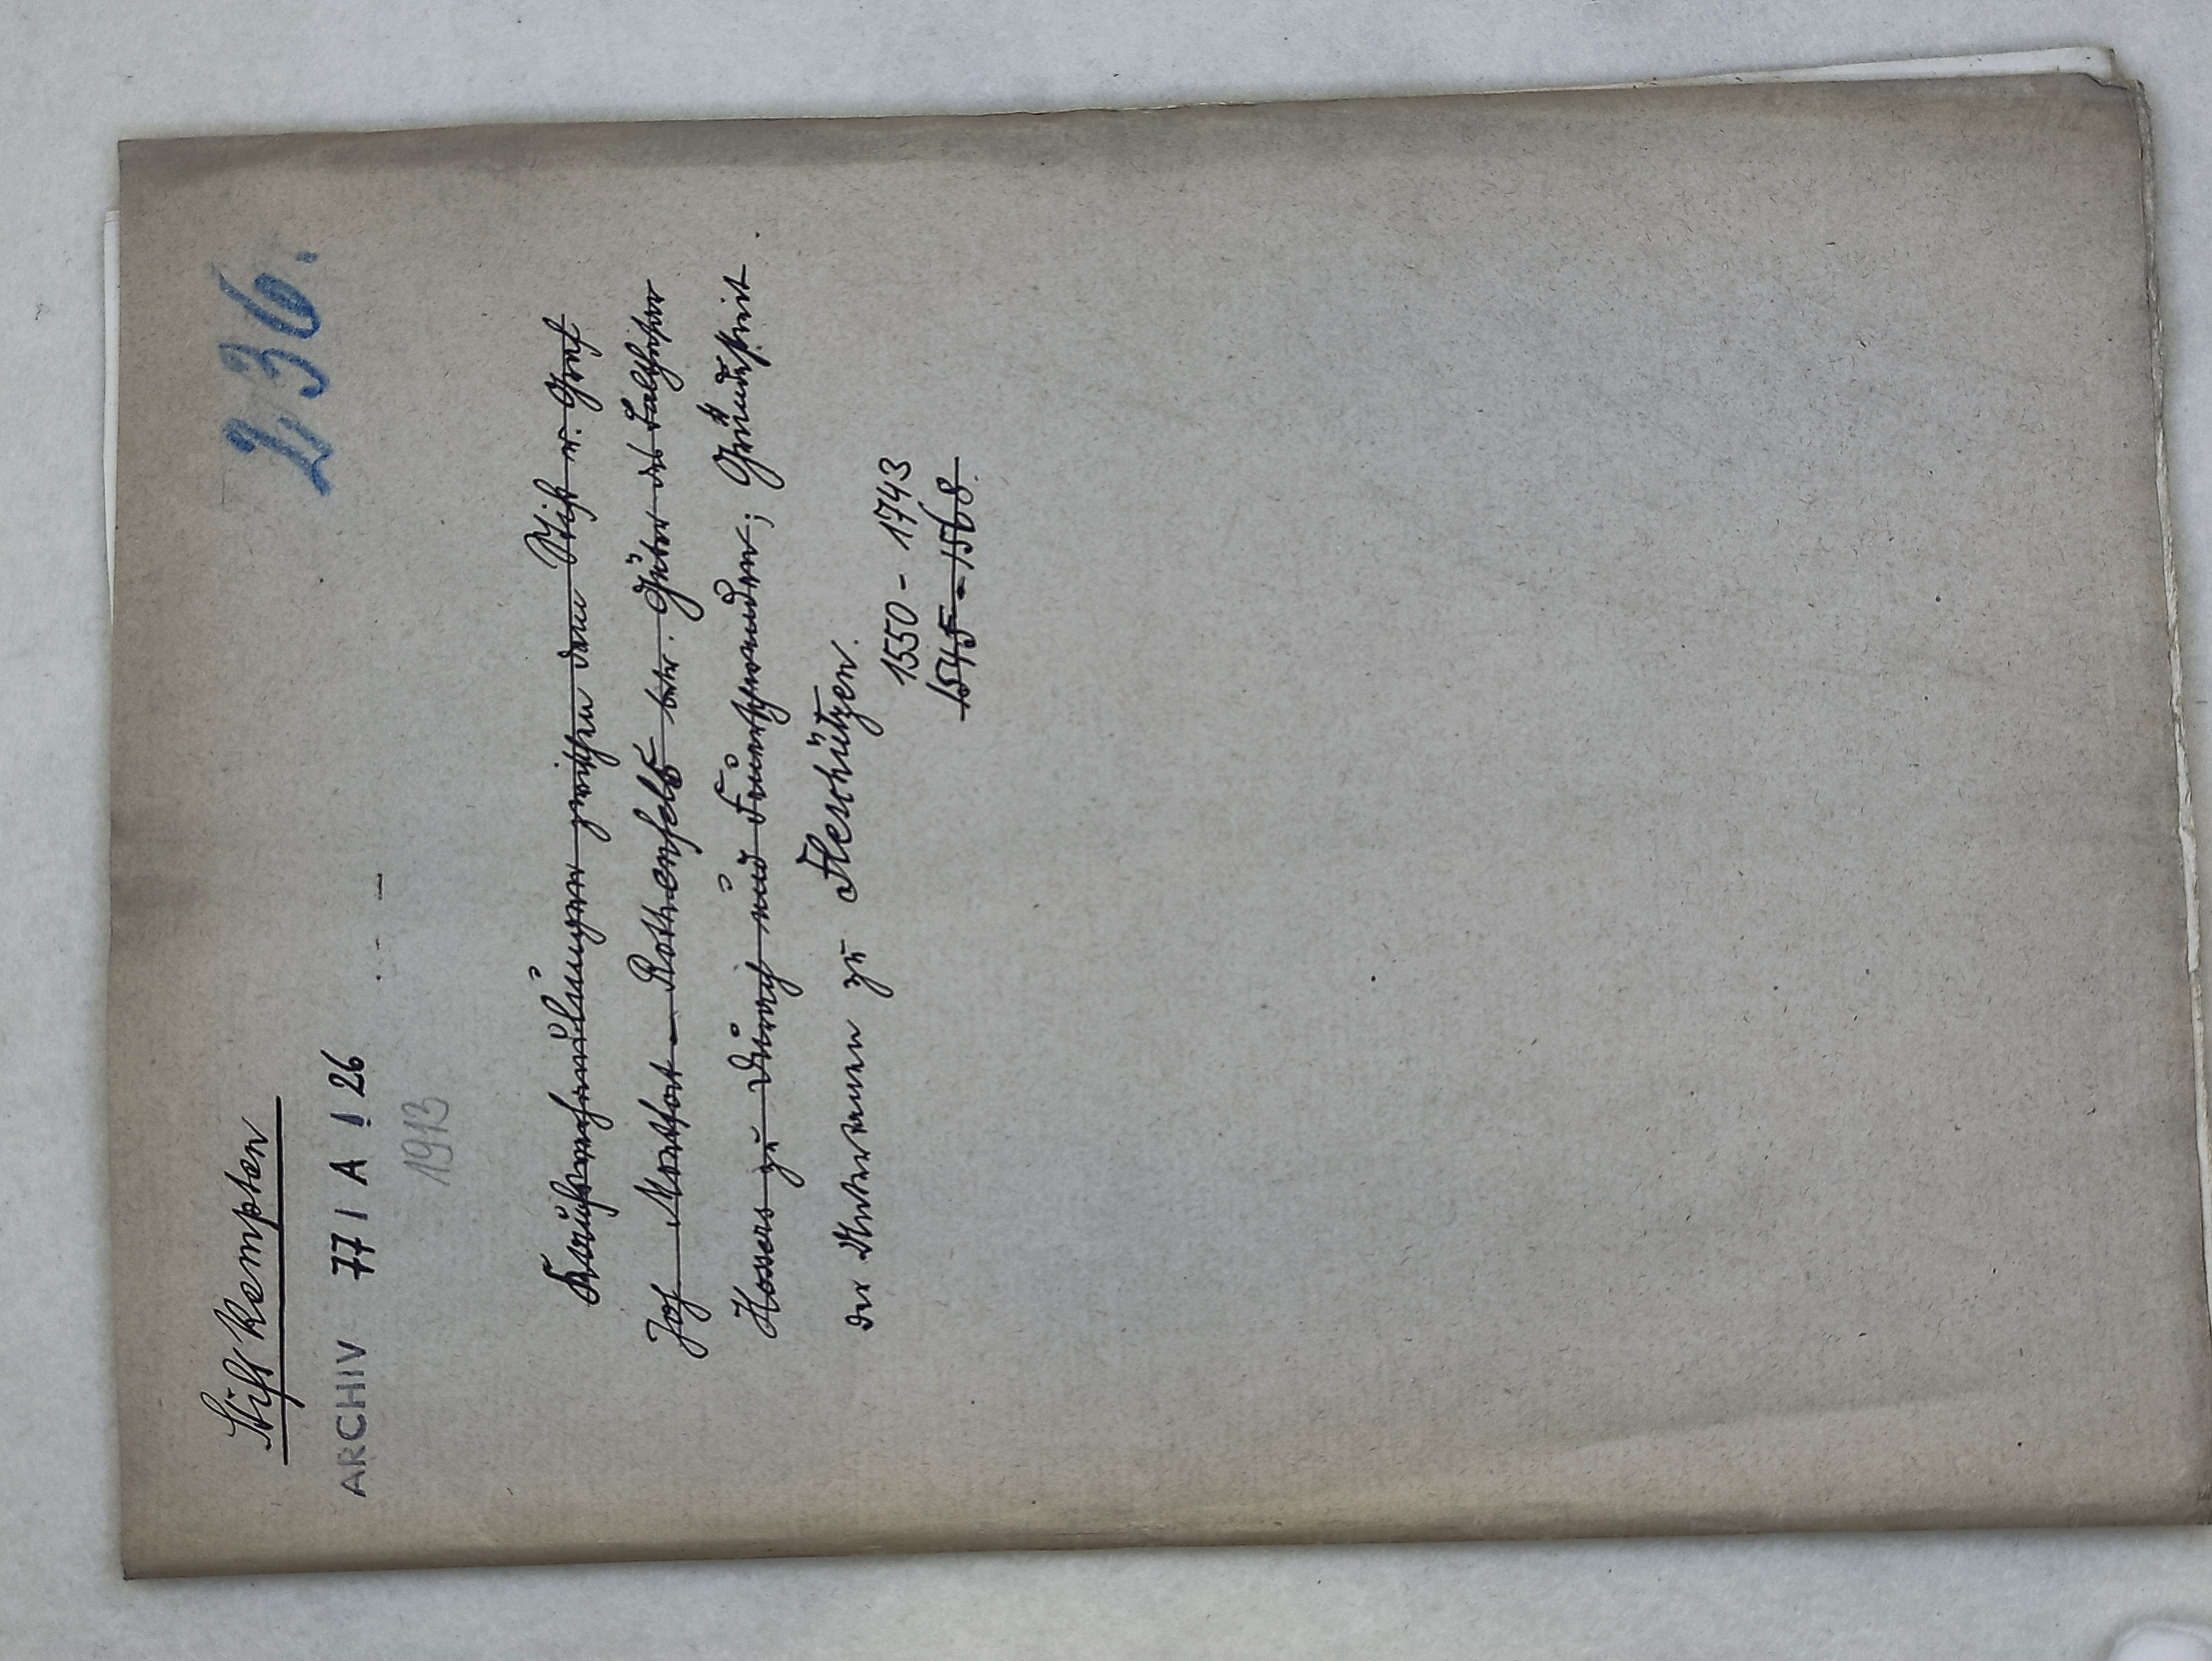 Stift Kempten
236.
ARCHIV 77 / A / 26
1913
Kaufsverhandlungen zwischen dem Stift u. Graf
Joh. Montfort - Rothenfels betr. Güter des Balthasar
Hossers zu Durach und Feuerschwenden;
der Untertanen zu Fleschützen.
1550 - 1743
1545 - 1568.